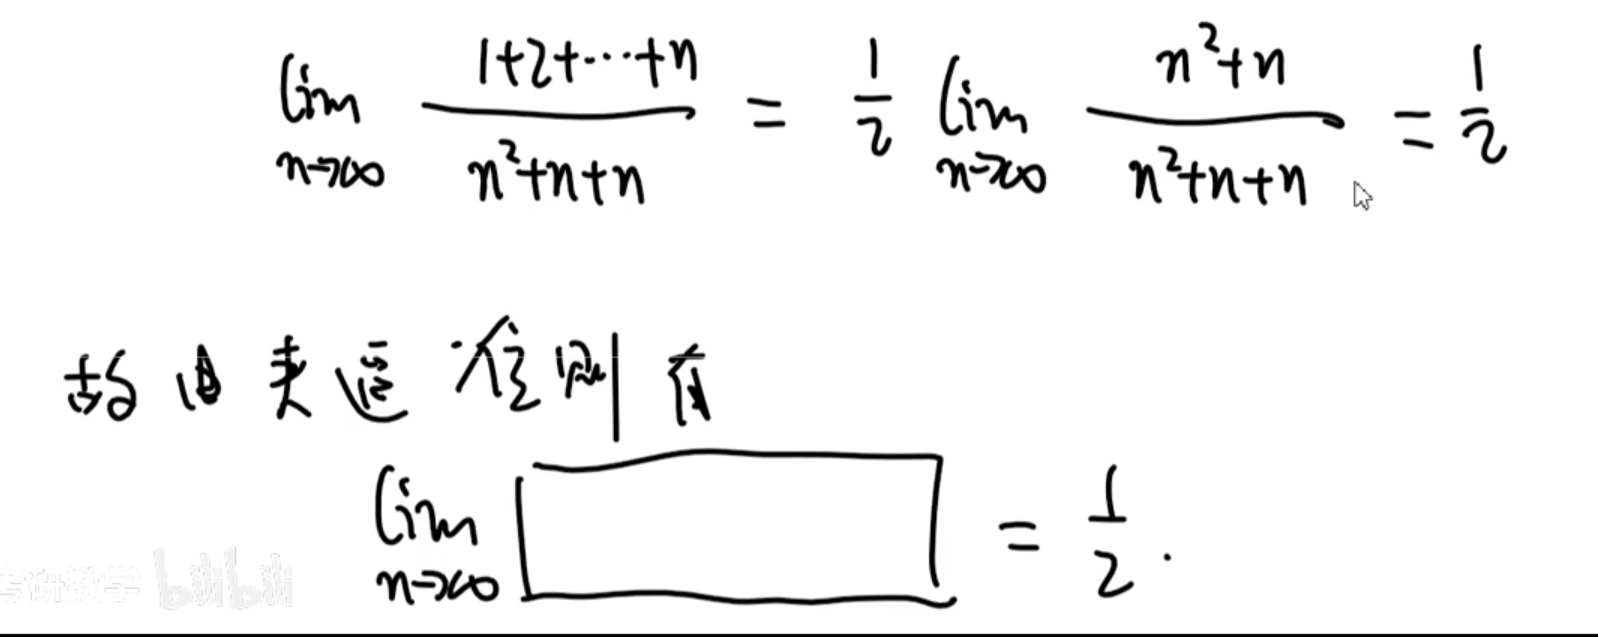 lim n→∞ (1+2+⋯+n)/(n²+n+n) = 1/2 lim n→∞ (n²+n)/(n²+n+n) = 1/2
故由夹逼准则有
lim n→∞ = 1/2.
考研数学 bilibili